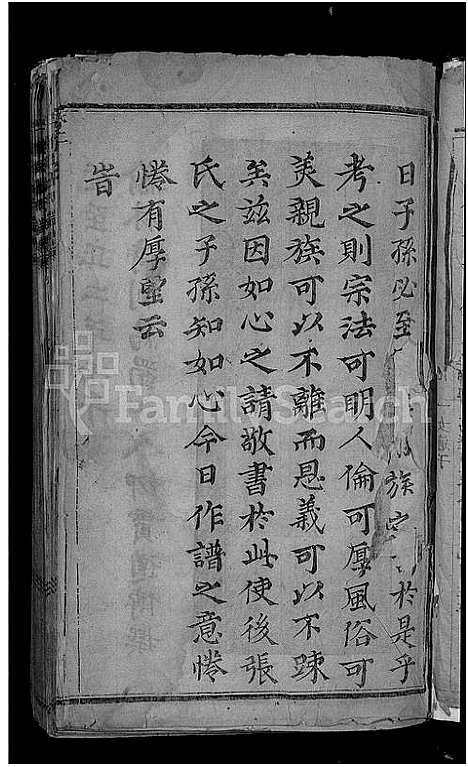 日子孫必至族於是乎
考之則宗法可明人倫可厚風俗可
美親族可以不離而恩義可以不踈
矣兹因如心之請敬書於此使後張
氏之子孫知如心今日作譜之意惓
惓有厚望云
旹
FamilySearch